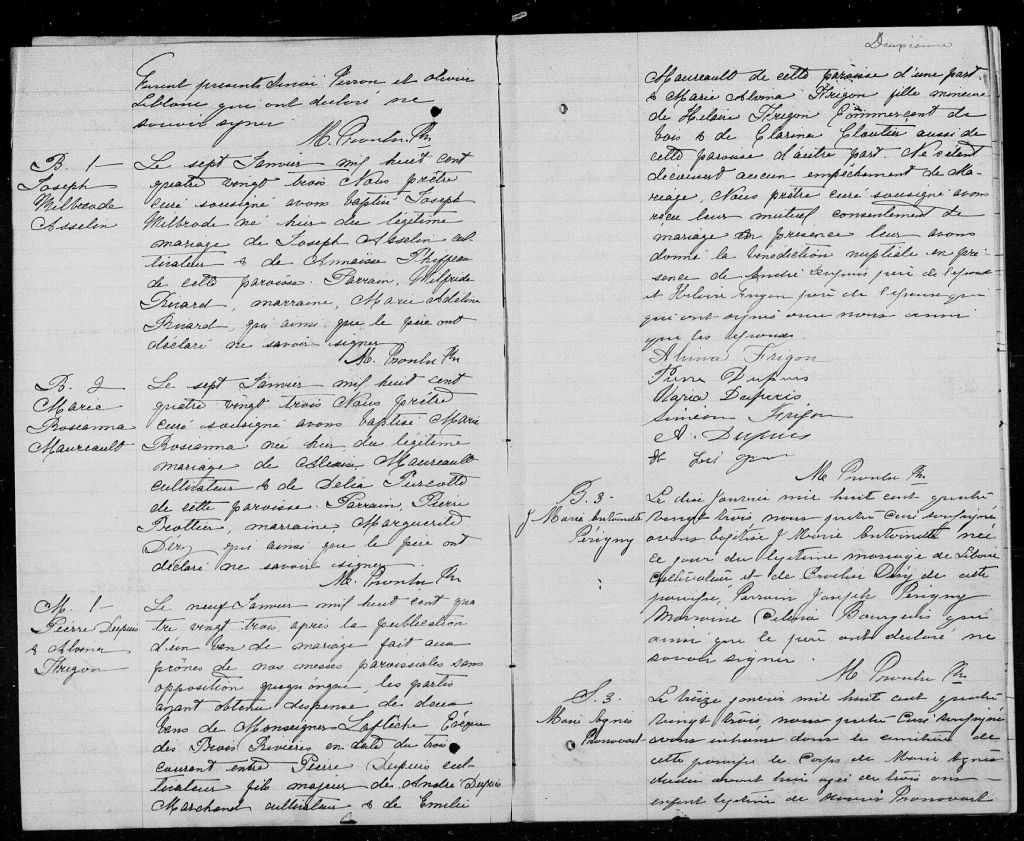 Furent presents Henri Perron et Olivier
Leblanc qui ont déclaré ne
savoir signer.
M. Proulx Ptr
B. 1—
Joseph
Wilbrode
Asselin
Le sept Janvier mil huit cent
quatre vingt trois Nous prêtre
curé soussigné avons baptisé Joseph
Wilbrode né hier du légitime
mariage de Joseph Asselin cul-
tivateur & de Annaïsse
de cette paroisse. Parrain, Wilfride
Ricard, marraine, Marie Adeline
Ricard, qui ainsi que le père ont
déclaré ne savoir signer
M. Proulx Ptr
B. 2
Marie
Rosianna
Maureault
Le sept Janvier mil huit cent
quatre vingt trois Nous prêtre
curé soussigné avons baptisé Marie
Rosianna née hier du légitime
mariage de Alexis Maureault
cultivateur & de Délia Turcotte
de cette paroisse. Parrain, Pierre
Trottier, marraine Marguerite
Déry qui ainsi que le père ont
déclaré ne savoir signer
M. Proulx Ptr
M. 1—
Pierre Dupuis
& Alvina
Frigon
Le neuf Janvier mil huit cent qua
tre vingt trois, après la publication
d'un ban de mariage fait aux
prônes de nos messes paroissiales sans
opposition quelconque, les parties
ayant obtenu dispense de deux
bans de Monseigneur Laflèche Evêque
des Trois Rivières en date du trois
courant entre Pierre Dupuis cul-
tivateur fils majeur de André Dupuis
Marchand cultivateur & de Emilie
Deuxième
Maureault de cette paroisse d'une part
& Marie Alvina Frigon fille mineure
de Helaire Frigon Commerçant de
bois & de Clarina Cloutier aussi de
cette paroisse d'autre part. Ne s'étant
découvert aucun empêchement de Ma-
riage, Nous prêtre curé soussigné avons
reçu leur mutuel consentement de
mariage en presence leur avons
donné la bénédiction nuptiale en pré-
sence de André Dupuis père de l'époux
et Hilaire Frigon père de l'épouse qui
qui ont signés avec nous ainsi
que les époux.
Alvina Frigon
Pierre Dupuis
Maria Dupuis
Siméon Frigon
A. Dupuis
M Proulx Ptr
B. 3
J Marie Antoinette
Périgny
Le dix Janvier mil huit cent quatre
vingt trois, nous prêtre Curé soussigné
avons baptisé J Marie Antoinette née
ce jour du légitime mariage de
cultivateur et de Déry de cette
paroisse, Parrain Joseph Périgny
Marraine Bourgeois qui
ainsi que le père ont déclaré ne
savoir signer.
M Proulx Ptr
S. 3.
Marie Agnès
Pronovost
Le treize janvier mil huit cent quatre
vingt trois, nous prêtre Curé soussigné
avons inhumé dans le cimetière de
cette paroisse le corps de Marie Agnès
agée de trois ans
enfant légitime de Pronovost